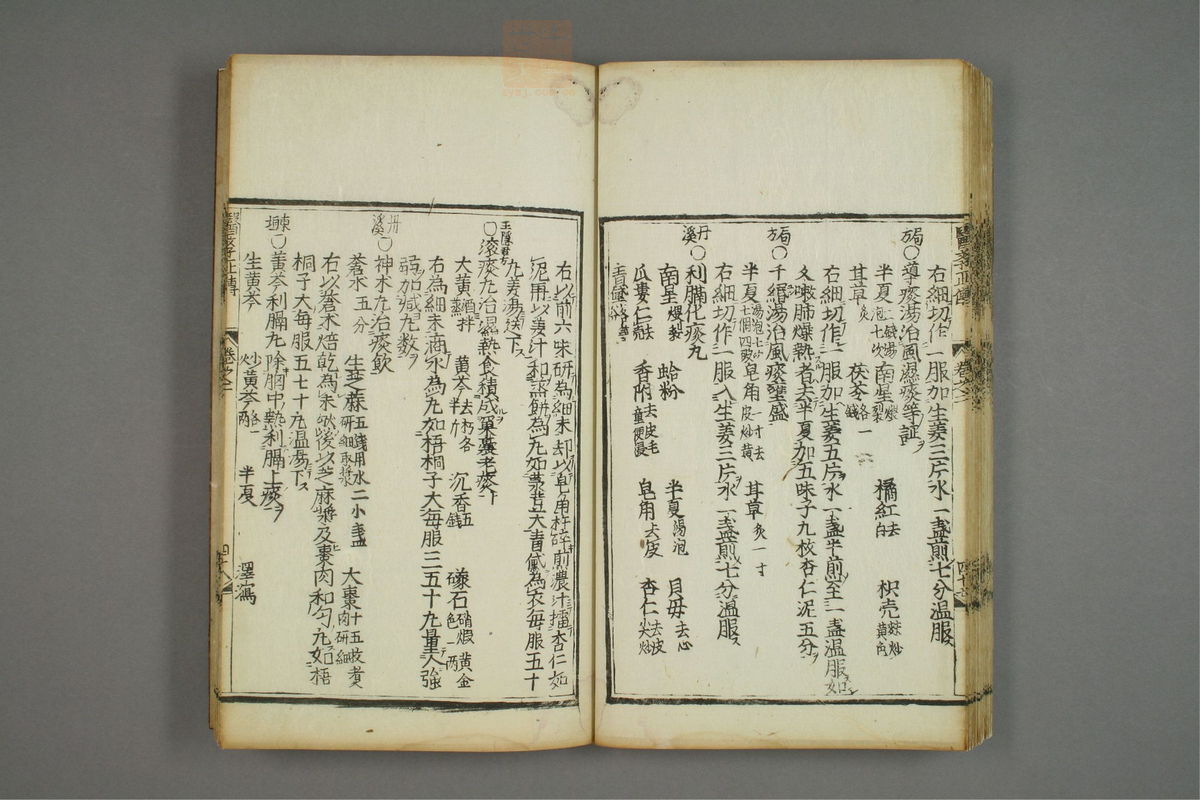 右細切作一服加生姜三片水一盞煎七分温服
局方○導痰湯治風濕痰等証
半夏二錢湯泡七次 南星煨製 橘紅去白 枳壳麩炒黄色
甘草炙 茯苓各一錢
右細切作一服加生姜五片水一盞半煎至一盞温服如
久嗽肺燥熱者去半夏加五味子九枚杏仁泥五分
局方○千緡湯治風痰壅盛
半夏湯泡七次七個四破 皂角一寸去皮炒黄 甘草炙一寸
右細切作一服入生姜三片水一盞煎七分温服
丹溪○利膈化痰丸
南星煨製 蛤粉 半夏湯泡 貝母去心
瓜蔞仁去壳 香附去皮毛童便浸 皂角去皮 杏仁去皮尖炒
青黛
右以前六味研為細末却以皂角杵碎煎濃汁擂杏仁如
泥再以姜汁和蒸餅為丸如菉豆大青黛為衣毎服五十
丸姜湯送下
王隱君方○滚痰丸治濕熱食積成窠囊老痰
大黄酒拌蒸 黄芩去朽各半斤 沉香五錢 礞石硝煆黄金色一両
右為細末滴水為丸如梧桐子大毎服三五十丸量人強
弱加减丸数
丹溪○神朮丸治痰飲
蒼朮五分 生芝麻五錢用水二小盞研細取漿 大棗十五枚煮肉研細
右以蒼朮焙乾為末然後以芝麻漿及棗肉和匀丸如梧
桐子大毎服五七十丸温湯下
東垣○黄芩利膈丸除胸中熱利膈上痰
生黄芩 炒黄芩各一両 半夏 澤瀉